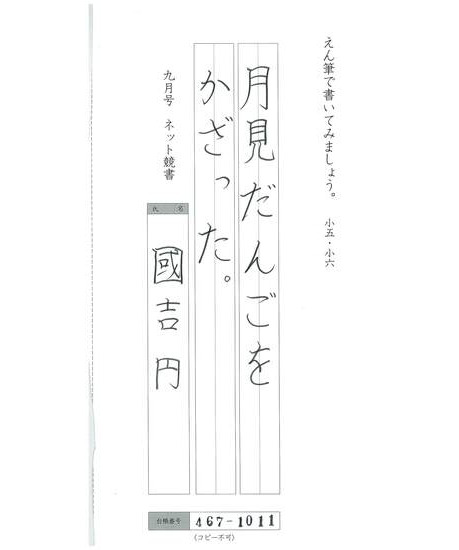 えん筆で書いてみましょう。 小五・小六
月見だんごを
かざった。
九月号 ネット競書
氏 名
國吉円
台帳番号 467-1011
(コピー不可)